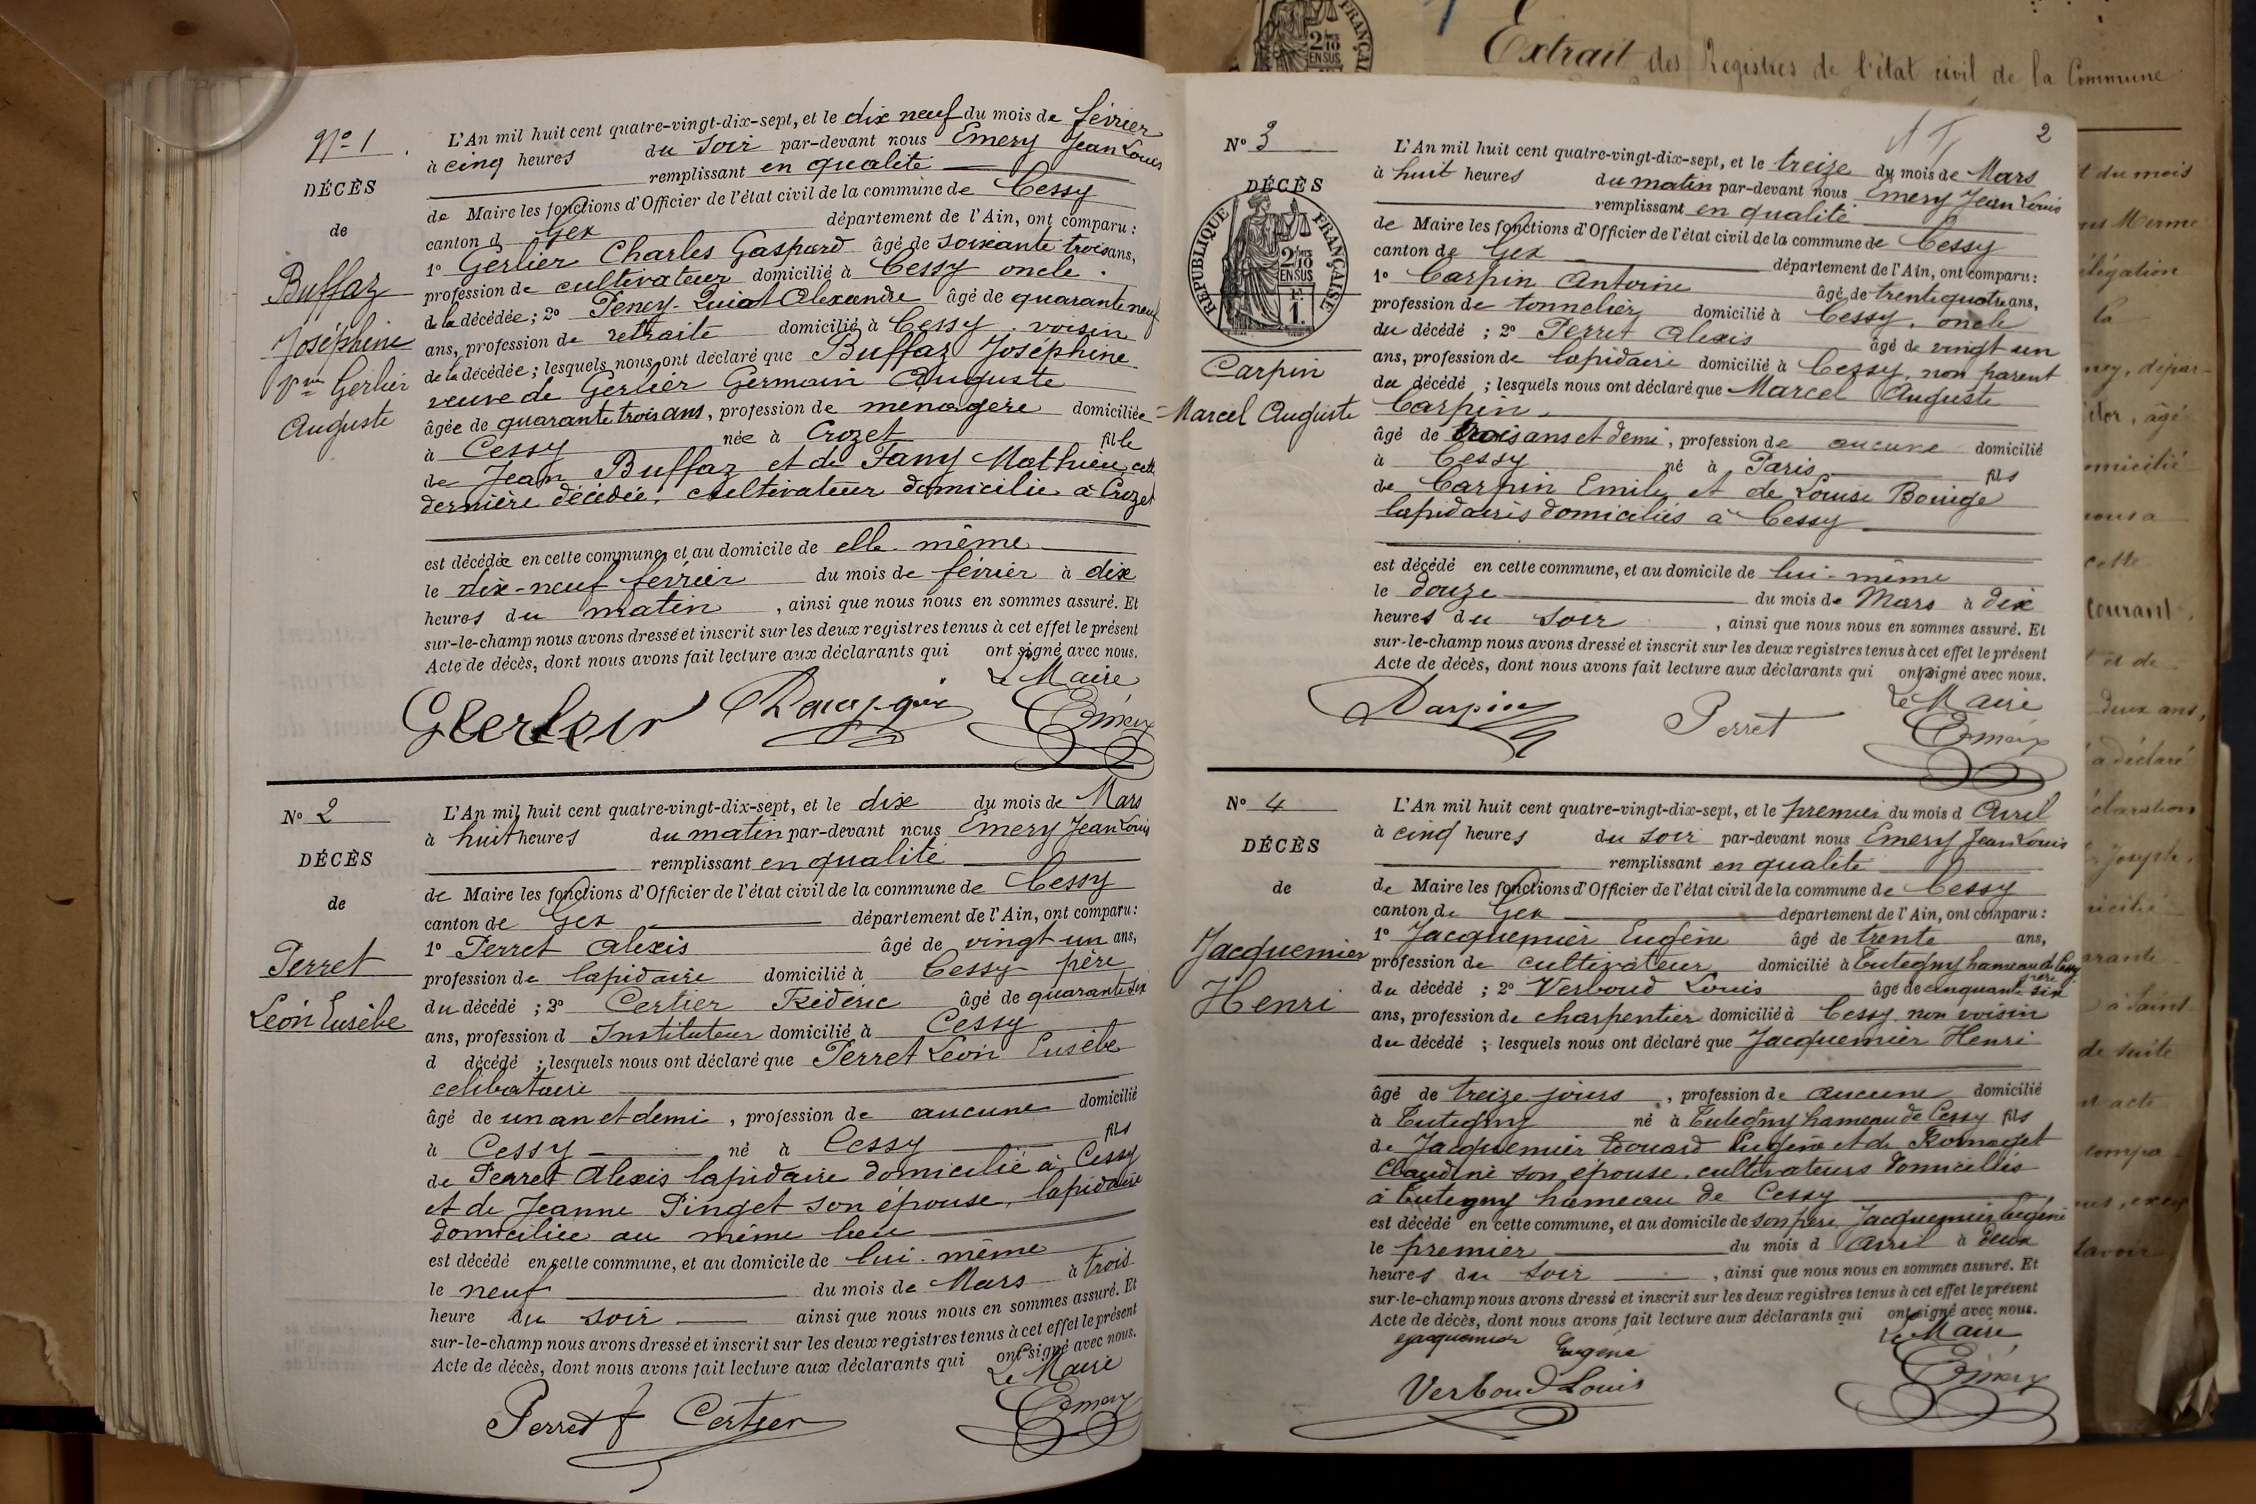 Nº 1
DÉCÈS
de
Buffaz
Joséphine
Vve Gerlier
Auguste
L'An mil huit cent quatre-vingt-dix-sept, et le dix neuf du mois de février
à cinq heures du soir par-devant nous Emery Jean Louis
remplissant en qualité
de Maire les fonctions d'Officier de l'état civil de la commune de Cessy
canton d Gex département de l'Ain, ont comparu :
1º Gerlier Charles Gaspard âgé de soixante trois ans,
profession de cultivateur domicilié à Cessy oncle
de la décédée ; 2º Alexandre âgé de quarante neuf
ans, profession de retraité domicilié à Cessy, voisin
de la décédée ; lesquels nous ont déclaré que Buffaz Joséphine
veuve de Gerlier Germain Auguste
âgée de quarante trois ans, profession de ménagère domiciliée
à Cessy née à Crozet fille
de Jean Buffaz et de Fany Mathieu cette
dernière décédée, cultivateur domicilié à Crozet
est décédée en cette commune, et au domicile de elle-même
le dix-neuf février du mois de février à dix
heures du matin , ainsi que nous nous en sommes assuré. Et
sur-le-champ nous avons dressé et inscrit sur les deux registres tenus à cet effet le présent
Acte de décès, dont nous avons fait lecture aux déclarants qui ont signé avec nous.
Le Maire
Gerlier Emery
Nº 2
DÉCÈS
de
Perret
Léon Eusèbe
L'An mil huit cent quatre-vingt-dix-sept, et le dix du mois de Mars
à huit heures du matin par-devant nous Emery Jean Louis
remplissant en qualité
de Maire les fonctions d'Officier de l'état civil de la commune de Cessy
canton de Gex département de l'Ain, ont comparu :
1º Perret Alexis âgé de vingt un ans,
profession de lapidaire domicilié à Cessy père
du décédé ; 2º Certier Frédéric âgé de quarante six
ans, profession d Instituteur domicilié à Cessy
d décédé ; lesquels nous ont déclaré que Perret Léon Eusèbe
célibataire
âgé de un an et demi , profession de aucune domicilié
à Cessy né à Cessy fils
de Perret Alexis lapidaire domicilié à Cessy
et de Jeanne Pinget son épouse, lapidaire
domiciliée au même lieu
est décédé en cette commune, et au domicile de lui-même
le neuf du mois de Mars à trois
heure du soir ainsi que nous nous en sommes assuré. Et
sur-le-champ nous avons dressé et inscrit sur les deux registres tenus à cet effet le présent
Acte de décès, dont nous avons fait lecture aux déclarants qui ont signé avec nous.
Le Maire
Perret Certier Emery
Extrait des Registres de l'état civil de la Commune
2
Nº 3
DÉCÈS
RÉPUBLIQUE FRANÇAISE
2/10
EN SUS
1
Carpin
Marcel Auguste
L'An mil huit cent quatre-vingt-dix-sept, et le treize du mois de Mars
à huit heures du matin par-devant nous Emery Jean Louis
remplissant en qualité
de Maire les fonctions d'Officier de l'état civil de la commune de Cessy
canton de Gex département de l'Ain, ont comparu :
1º Carpin Antoine âgé de trente quatre ans,
profession de tonnelier domicilié à Cessy, oncle
du décédé ; 2º Perret Alexis âgé de vingt un
ans, profession de lapidaire domicilié à Cessy, non parent
du décédé ; lesquels nous ont déclaré que Marcel Auguste
Carpin
âgé de trois ans et demi , profession de aucune domicilié
à Cessy né à Paris fils
de Carpin Emile et de Louise
lapidaires domiciliés à Cessy
est décédé en cette commune, et au domicile de lui-même
le douze du mois de Mars à dix
heures du soir , ainsi que nous nous en sommes assuré. Et
sur-le-champ nous avons dressé et inscrit sur les deux registres tenus à cet effet le présent
Acte de décès, dont nous avons fait lecture aux déclarants qui ont signé avec nous.
Le Maire
Carpin Perret Emery
Nº 4
DÉCÈS
de
Jacquemier
Henri
L'An mil huit cent quatre-vingt-dix-sept, et le premier du mois d Avril
à cinq heures du soir par-devant nous Emery Jean Louis
remplissant en qualité
de Maire les fonctions d'Officier de l'état civil de la commune de Cessy
canton de Gex département de l'Ain, ont comparu :
1º Jacquemier Eugène âgé de trente ans,
profession de cultivateur domicilié à Tutegny hameau de Cessy père
du décédé ; 2º Verboud Louis âgé de cinquante six
ans, profession de charpentier domicilié à Cessy non voisin
du décédé ; lesquels nous ont déclaré que Jacquemier Henri
âgé de treize jours , profession de aucune domicilié
à Tutegny né à Tutegny hameau de Cessy fils
de Jacquemier Edouard Eugène et de
Claudine son épouse, cultivateurs domiciliés
à Tutegny hameau de Cessy
est décédé en cette commune, et au domicile de son père Jacquemier Eugène
le premier du mois d Avril à deux
heures du soir , ainsi que nous nous en sommes assuré. Et
sur-le-champ nous avons dressé et inscrit sur les deux registres tenus à cet effet le présent
Acte de décès, dont nous avons fait lecture aux déclarants qui ont signé avec nous.
Le Maire
Jacquemier Eugène
Verboud Louis Emery